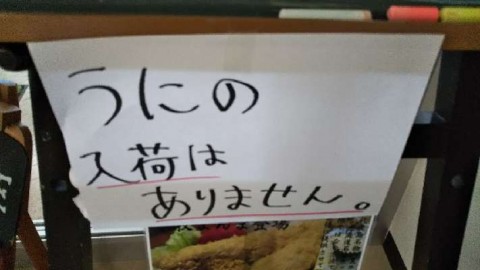 うにの
入荷は
ありません。